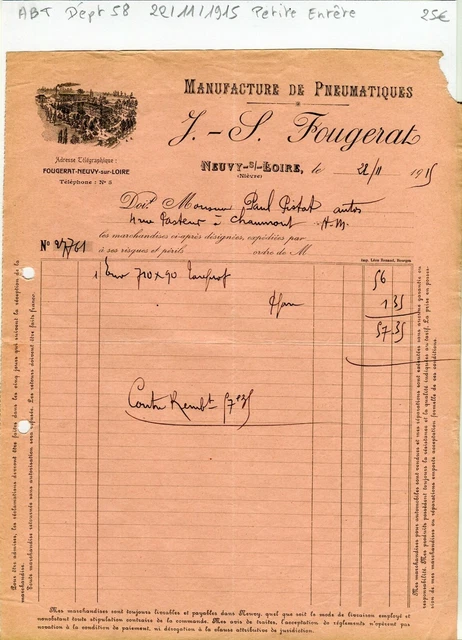 ABT Dépt 58 22/11/1915 Petite Entête 25€
MANUFACTURE DE PNEUMATIQUES
J.-S. Fougerat
Adresse Télégraphique :
FOUGERAT-NEUVY-SUR-LOIRE
Téléphone : N° 5
NEUVY-S/-LOIRE, le 22/11 1915
(Nièvre)
Doit Monsieur Paul Pistat autos
4 rue Pasteur à Chaumont H-M.
les marchandises ci-après désignées, expédiées par
à ses risques et périls ordre de M
N° 27761
Imp. Léon Renaud, Bourges
1 Env 710x90 56
1 35
57 35
Contre Rembt 57 35
Pour être admises, les réclamations doivent être faites dans les cinq jours qui suivent la réception de la marchandise.
Toute marchandise retournée sans autorisation sera refusée. Les retours doivent être faits franco.
Mes marchandises sont toujours livrables et payables dans Neuvy, quel que soit le mode de livraison employé et
nonobstant toute stipulation contraire de la commande. Mes avis de traites, l'acceptation de règlements n'opèrent pas
novation à la condition de paiement, ni dérogation à la clause attributive de juridiction.